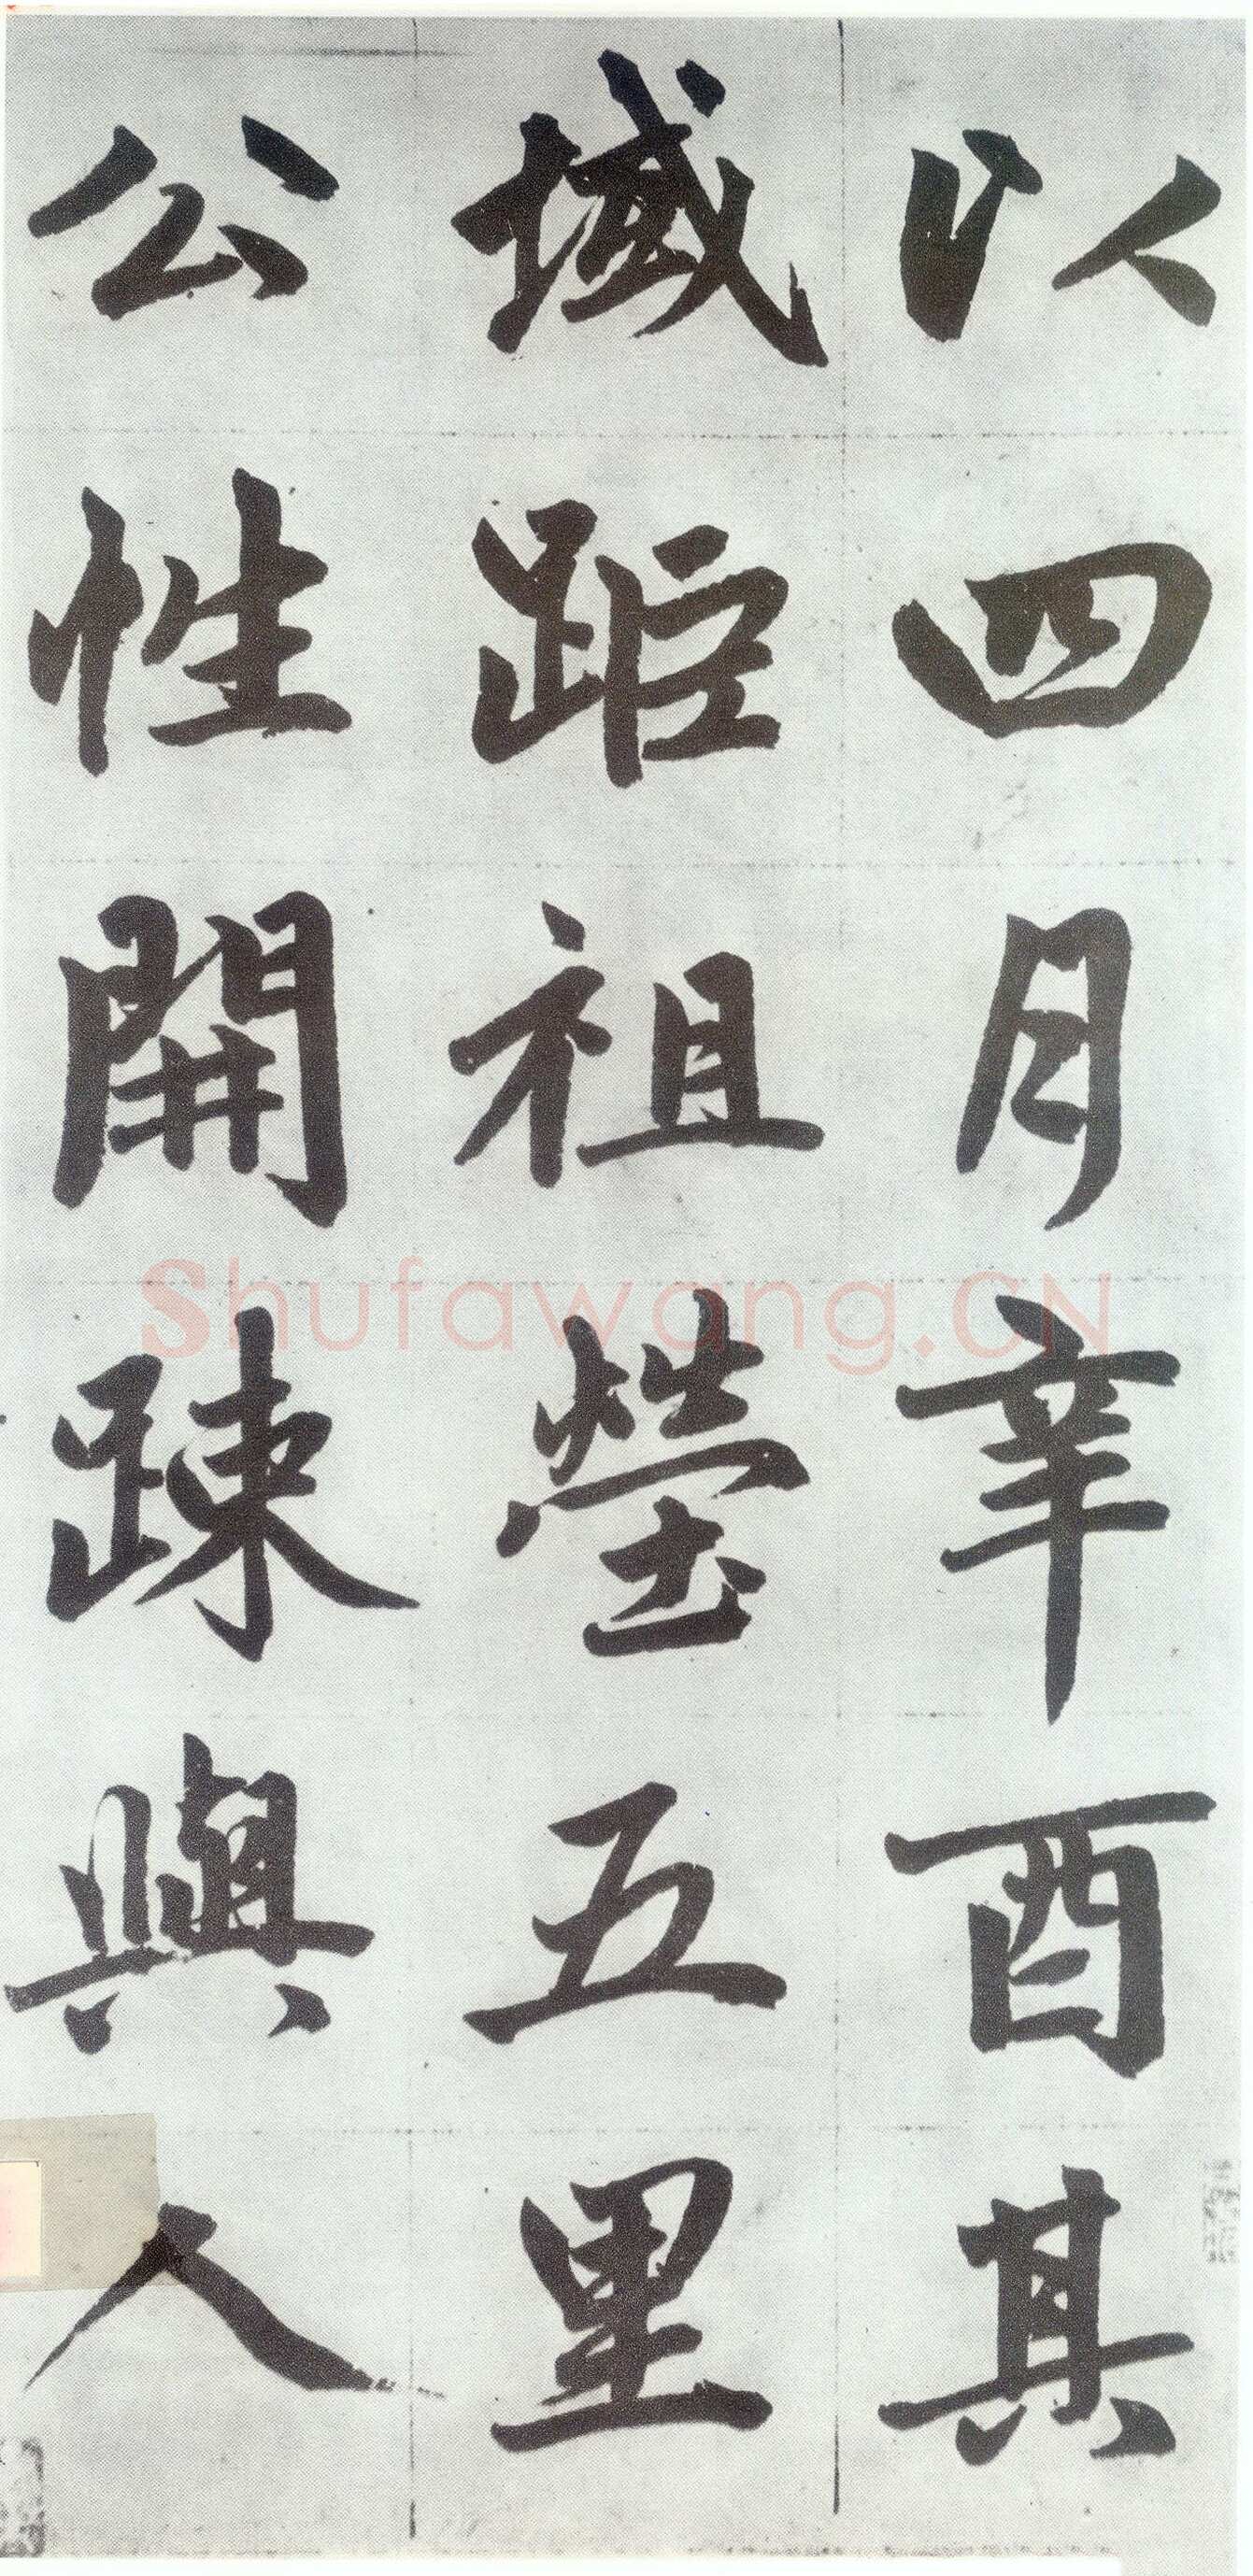 以四月辛酉其
域距祖塋五里
公性開踈與人
Shufawang.CN